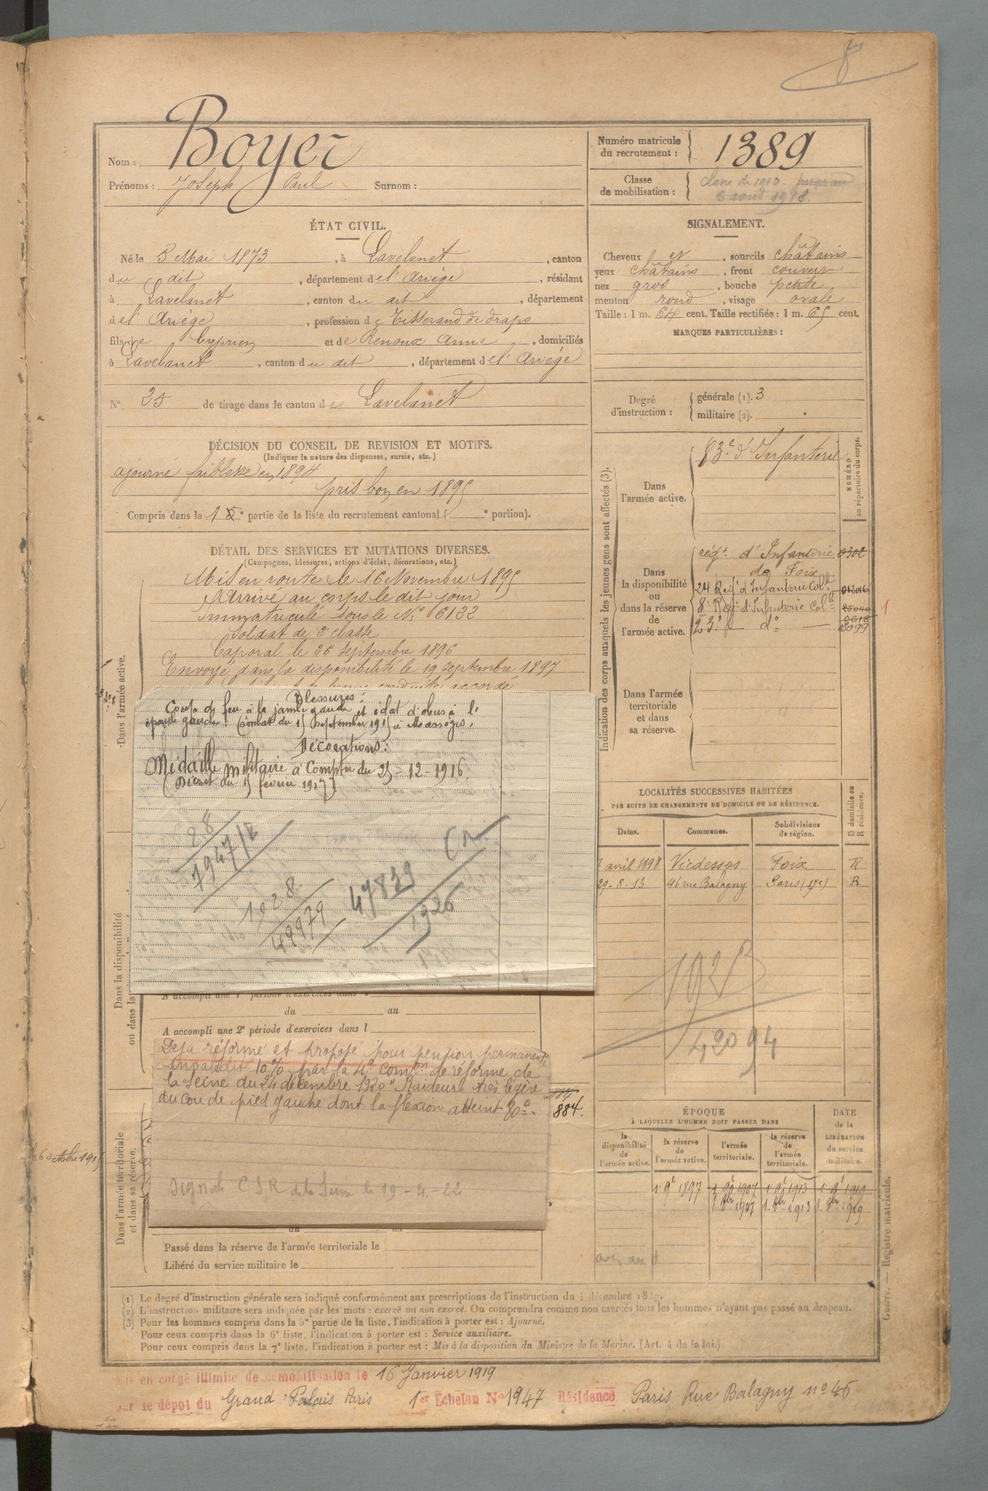 8
Nom : Boyer
Prénoms : Joseph Paul Surnom :
Numéro matricule du recrutement : 1389
Classe de mobilisation : classe de 1910
ÉTAT CIVIL.
Né le 3 Mai 1873, à Lavelanet, canton
du dit, département de l'Ariège, résidant
à Lavelanet, canton du dit, département
de l'Ariège, profession de Tisserand de draps
fils de Cyprien et de Renoux Anne, domiciliés
à Lavelanet, canton du dit, département de l'Ariège
N° 35 de tirage dans le canton de Lavelanet
SIGNALEMENT.
Cheveux et, sourcils châtains
yeux châtains, front couvert
nez gros, bouche petite
menton rond, visage ovale
Taille : 1 m. 64 cent. Taille rectifiée : 1 m. 65 cent.
MARQUES PARTICULIÈRES :
Degré d'instruction : générale (1). 3
militaire (2).
DÉCISION DU CONSEIL DE REVISION ET MOTIFS.
(Indiquer la nature des dispenses, sursis, etc.)
ajourné faiblesse en 1894
pris bon en 1895
Compris dans la 1e partie de la liste du recrutement cantonal ( e portion).
DÉTAIL DES SERVICES ET MUTATIONS DIVERSES.
(Campagnes, blessures, actions d'éclat, décorations, etc.)
Mis en route le 16 Novembre 1895
Arrivé au corps le dit jour
Immatriculé sous le N°
Soldat de 2e classe
Caporal le 26 septembre 1896
Envoyé dans la disponibilité le 19 septembre 1897
accordé
Dans l'armée active.
Blessures
Coup de feu à la jambe gauche et éclat d'obus à l'
épaule gauche (combat du 15 septembre 1915 à Massiges.
Décorations :
Médaille militaire à Compter du 25-12-1916
(Décret du 15 février 1917)
28
1947/E
1928
49979
47839
1926
CR
Dans la disponibilité
ou dans la
du au
A accompli une 2e période d'exercices dans l
Déjà réformé et proposé pour pension permanente
invalidité 10% par la 4e comon de réforme de
la Seine du 24 décembre 1920 "Raideur très légère
du cou de pied gauche dont la flexion atteint
884.
Signé C S R de la Seine le 19-4-22
Dans l'armée territoriale
et dans sa réserve.
Passé dans la réserve de l'armée territoriale le
Libéré du service militaire le
Indication des corps auxquels les jeunes gens sont affectés (3).
NUMÉRO au répertoire du corps.
Dans l'armée active.
83e d'Infanterie
Dans la disponibilité ou dans la réserve de l'armée active.
régt d'Infanterie
de Foix
24 Régt d'Infanterie Colle
8e Régt d'Infanterie Colle
23e do
1
Dans l'armée territoriale et dans sa réserve.
LOCALITÉS SUCCESSIVES HABITÉES
PAR SUITE DE CHANGEMENTS DE DOMICILE OU DE RÉSIDENCE.
Dates. Communes. Subdivisions de région. D domicile ou R résidence.
avril 1898 Vicdessos Foix R
29-8-13 46 rue Balagny Paris (17e) R
42094
ÉPOQUE
À LAQUELLE L'HOMME DOIT PASSER DANS
la disponibilité de l'armée active. la réserve de l'armée active. l'armée territoriale. la réserve de l'armée territoriale.
DATE de la LIBÉRATION du service militaire.
1 9e 1897 1 9e 1907 1 9e 1913 1 9e 1919
1 8bre 1907 1 8bre 1913 1 8bre 1919
(1) Le degré d'instruction générale sera indiqué conformément aux prescriptions de l'instruction du décembre
(2) L'instruction militaire sera indiquée par les mots : exercé ou non exercé. On comprendra comme non exercés tous les hommes n'ayant pas passé au drapeau.
(3) Pour les hommes compris dans la 5e partie de la liste, l'indication à porter est : Ajourné.
Pour ceux compris dans la 6e liste, l'indication à porter est : Service auxiliaire.
Pour ceux compris dans la 7e liste, l'indication à porter est : Mis à la disposition du Ministre de la Marine. (Art. 4 de la loi.)
Guerre. — Registre matricule.
Mis en congé illimité de démobilisation le 16 Janvier 1919
par le dépôt du Grand Palais Paris 1er Echelon N° 1947 Résidence Paris Rue Balagny no 46